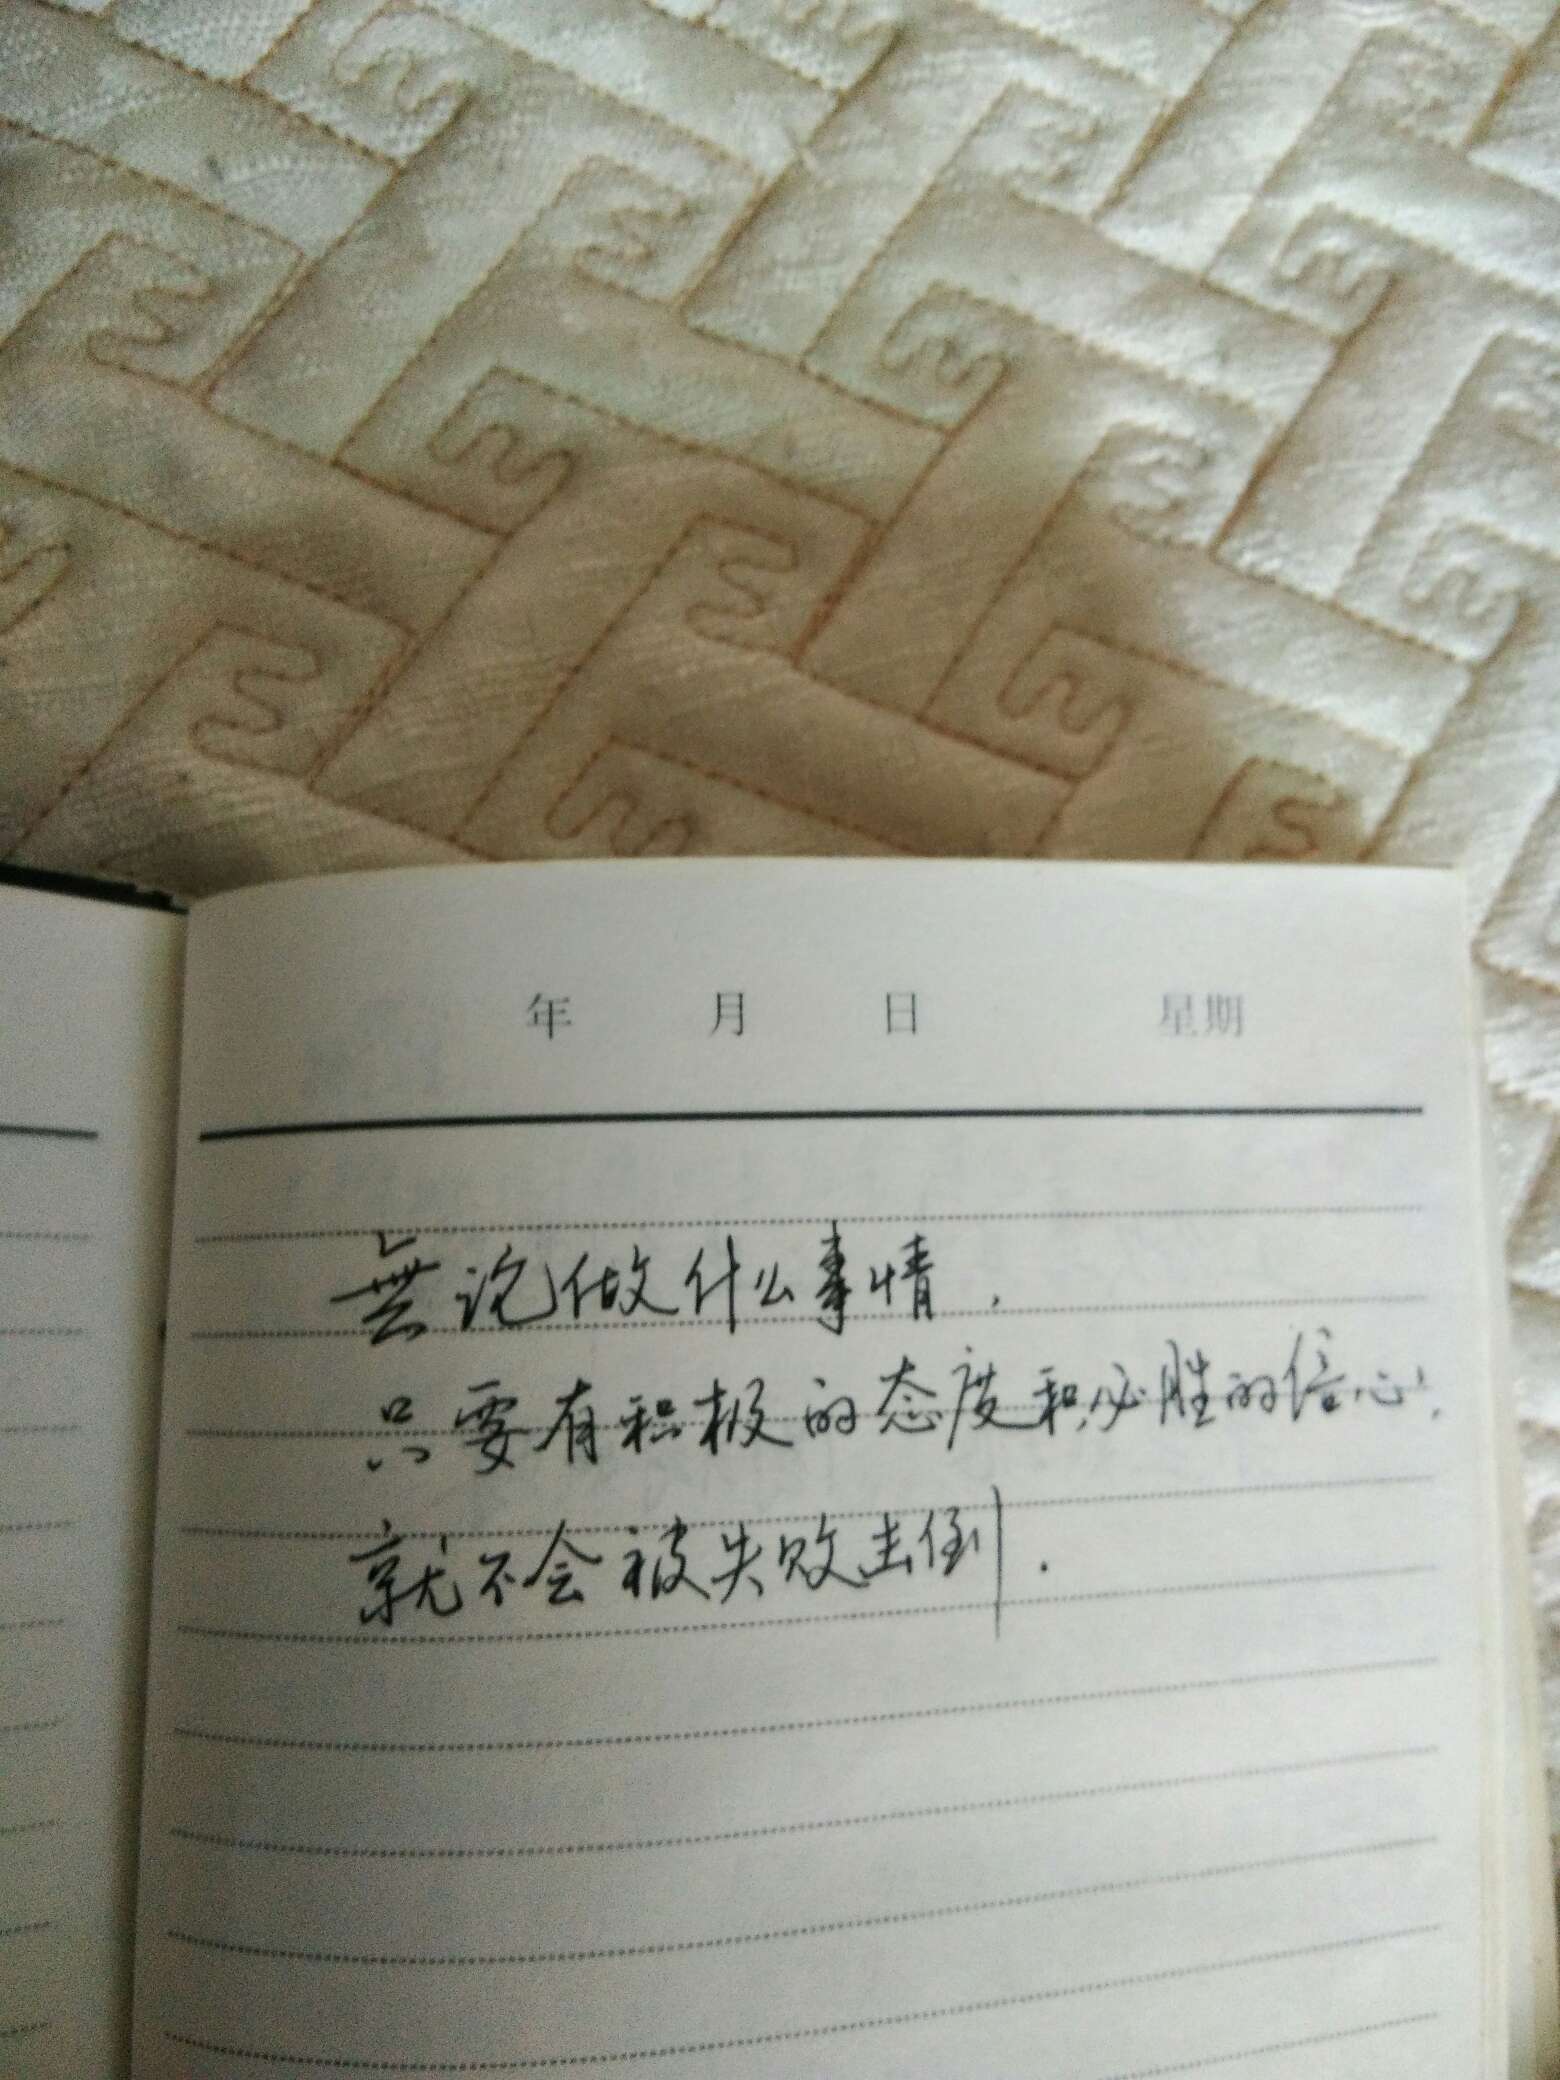 年 月 日 星期
無论做什么事情,
只要有积极的态度和必胜的信心,
就不会被失败击倒.